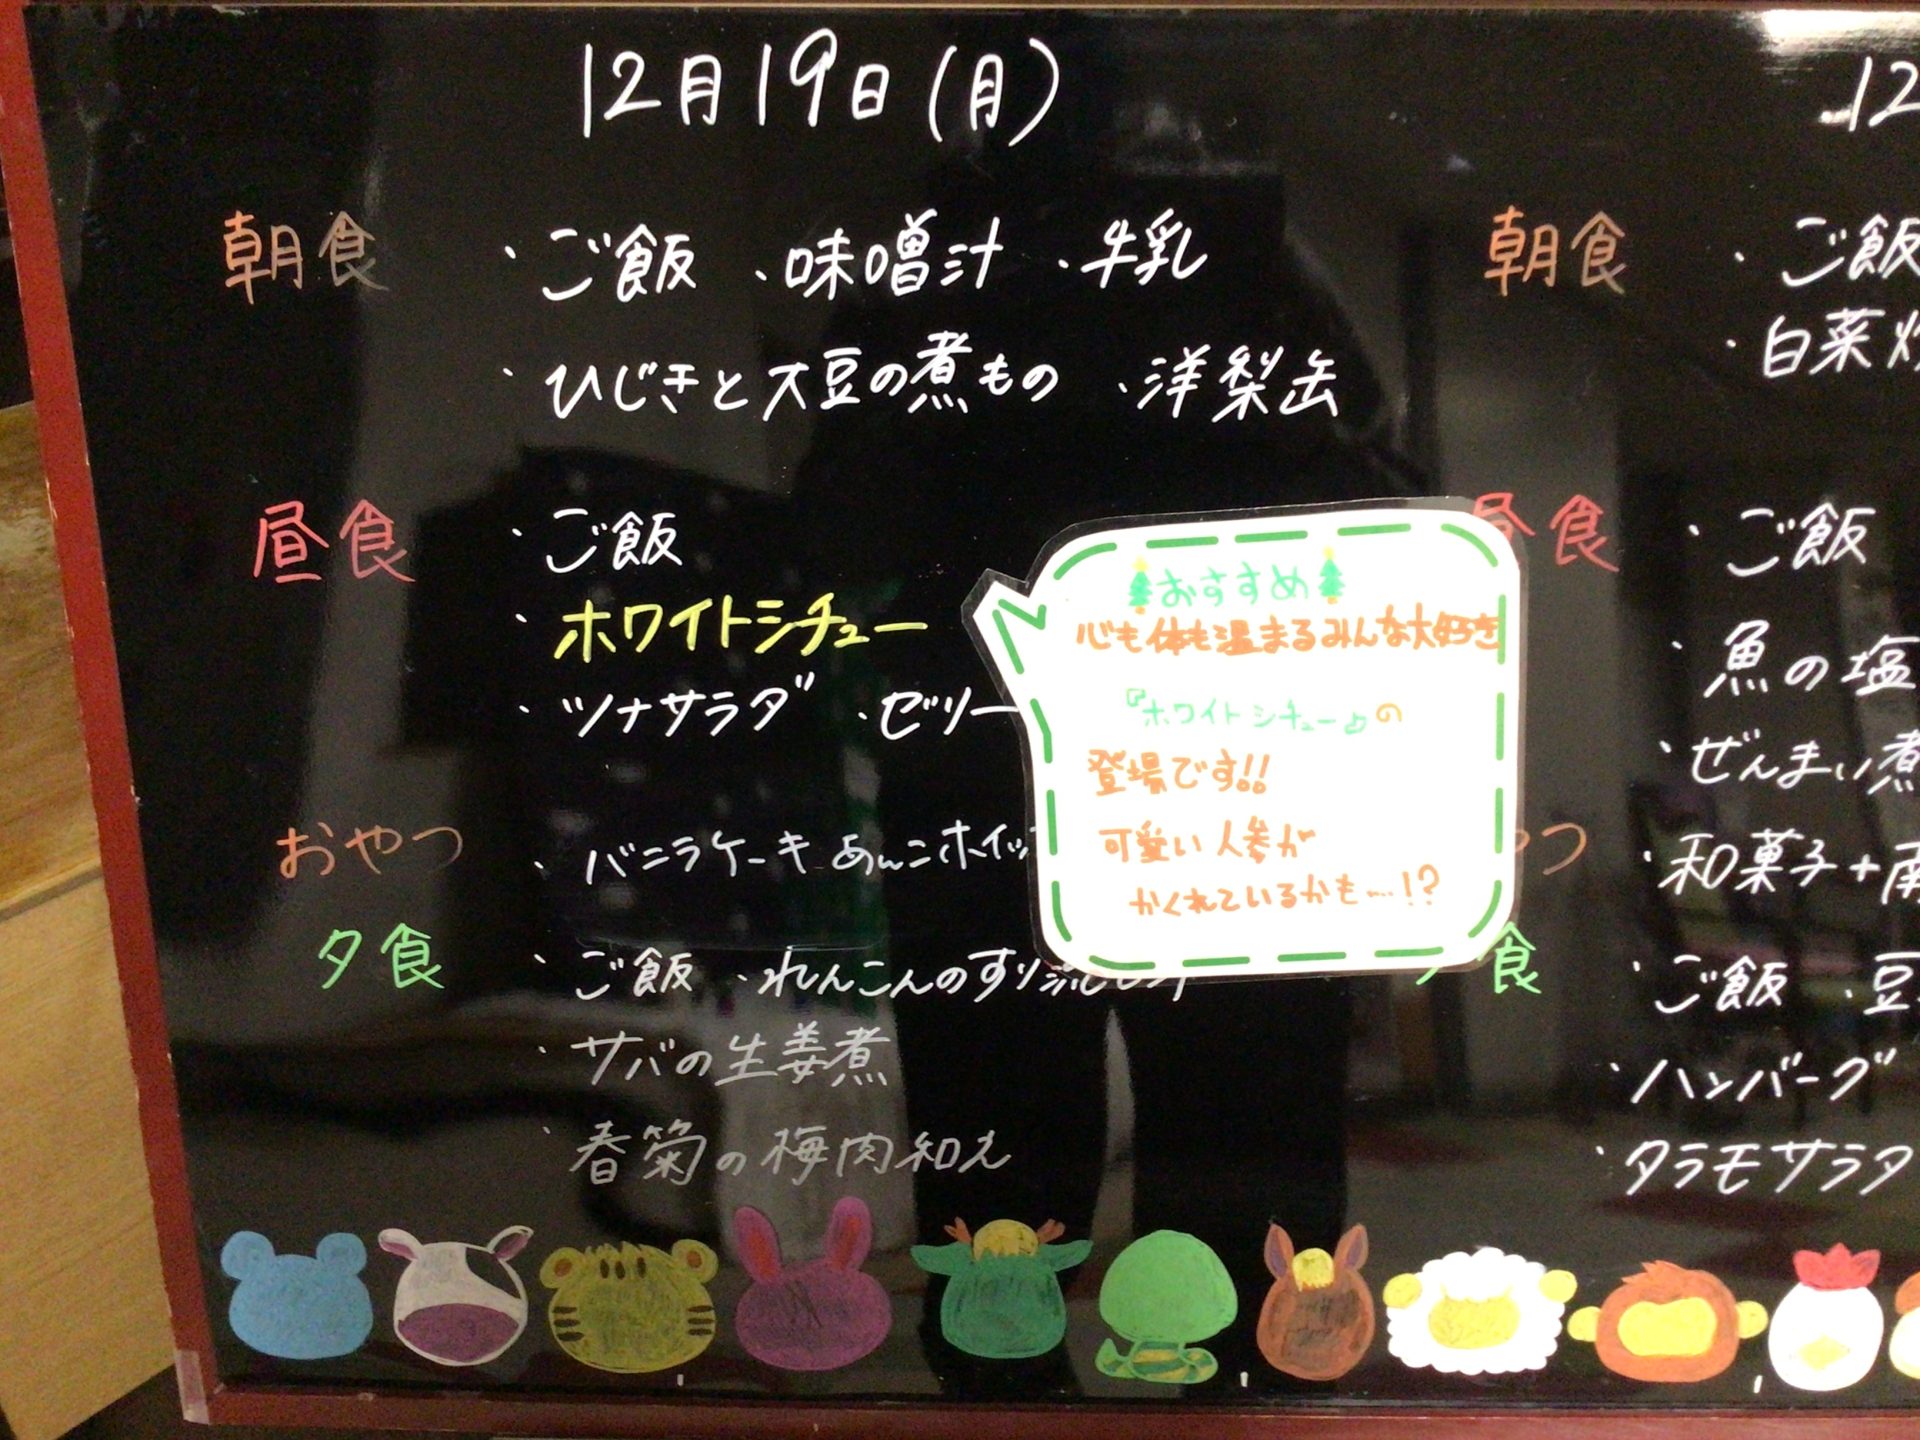 12月19日(月)
朝食
・ご飯 ・味噌汁 ・牛乳
・ひじきと大豆の煮もの ・洋梨缶
昼食
・ご飯
・ホワイトシチュー
・ツナサラダ ・ゼリー
おすすめ
心も体も温まるみんな大好き
『ホワイトシチュー』の
登場です!!
可愛い人参が
かくれているかも…!?
おやつ
・バニラケーキ あんこホイッ
夕食
・ご飯 ・れんこんのすり流し汁
・サバの生姜煮
・春菊の梅肉和え
12
朝食
・ご飯
・白菜炒
昼食
・ご飯
・魚の塩
・ぜんまい煮
やつ
・和菓子+南
夕食
・ご飯 ・豆
・ハンバーグ
・タラモサラダ